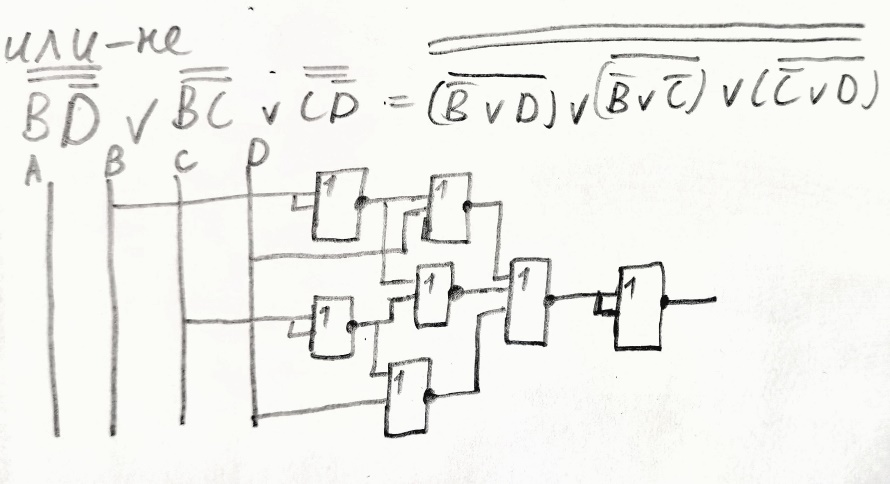 или-не
B̿D̿̅ ∨ B̿C̿ ∨ C̿D̿̅ = (B̅ ∨ D)‾ ∨ (B̅ ∨ C̅)‾ ∨ (C̅ ∨ D)‾
A B C D
1 1
1 1 1
1
1